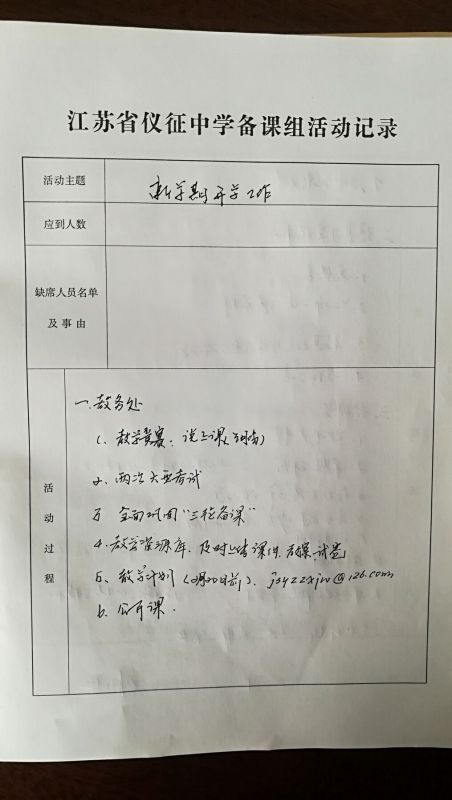 江苏省仪征中学备课组活动记录
活动主题
新学期开学工作
应到人数
缺席人员名单
及事由
活动过程
一.教务处
1. 教学竞赛, 说上课
2. 两次大型考试
3 全面巩固“三轮备课”
4. 教学资源库, 及时上传课件.教案.试卷
5. 教学计划 jsyzzxjw@126.com
6. 公开课.